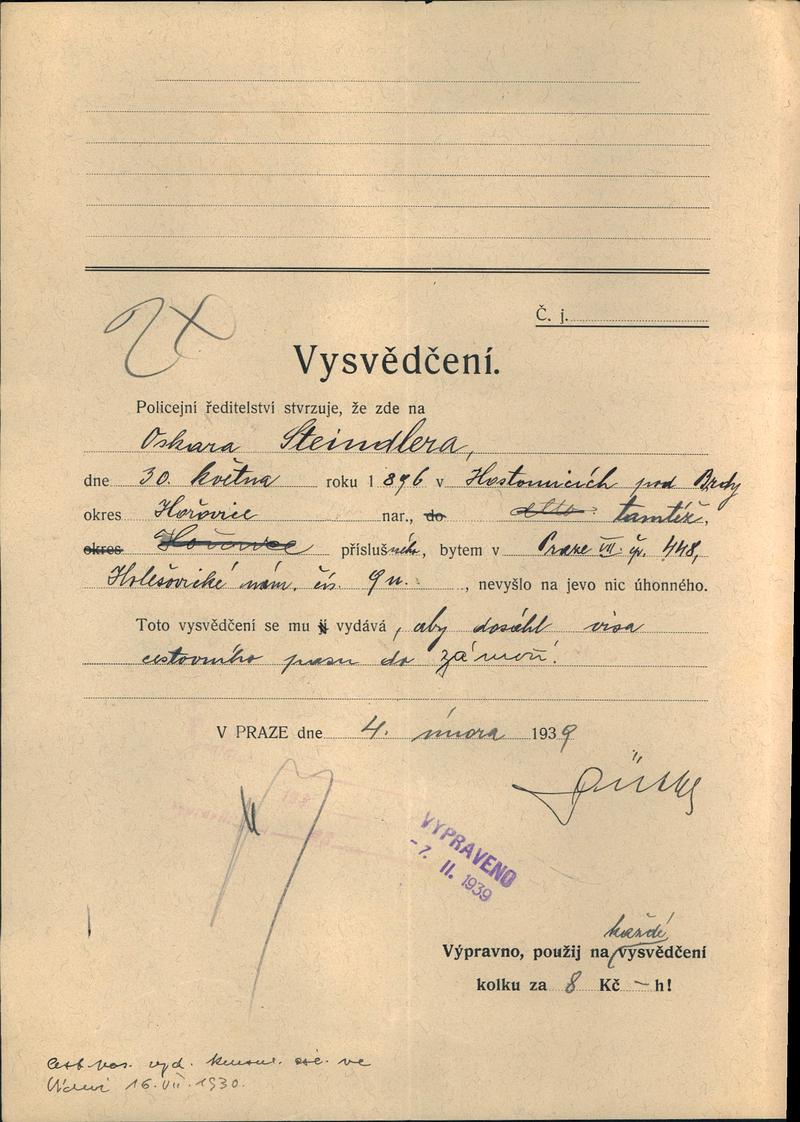 Č. j.
Vysvědčení.
Policejní ředitelství stvrzuje, že zde na
Oskara Steindlera,
dne 30. května roku 1896 v Hostomicích pod Brdy
okres Hořovice nar., do tamtéž,
okres Hořovice příslušného, bytem v Praze VII. čp. 448,
Holešovické nám. čís. 9 n. , nevyšlo na jevo nic úhonného.
Toto vysvědčení se mu jí vydává, aby dosáhl visa
cestovního pasu do zámoří.
V PRAZE dne 4. února 1939
VYPRAVENO
-7. II. 1939
každé
Výpravno, použij na vysvědčení
kolku za 8 Kč — h!
cest. pas. vyd. konsul. ve
Vídni 16. VII. 1930.